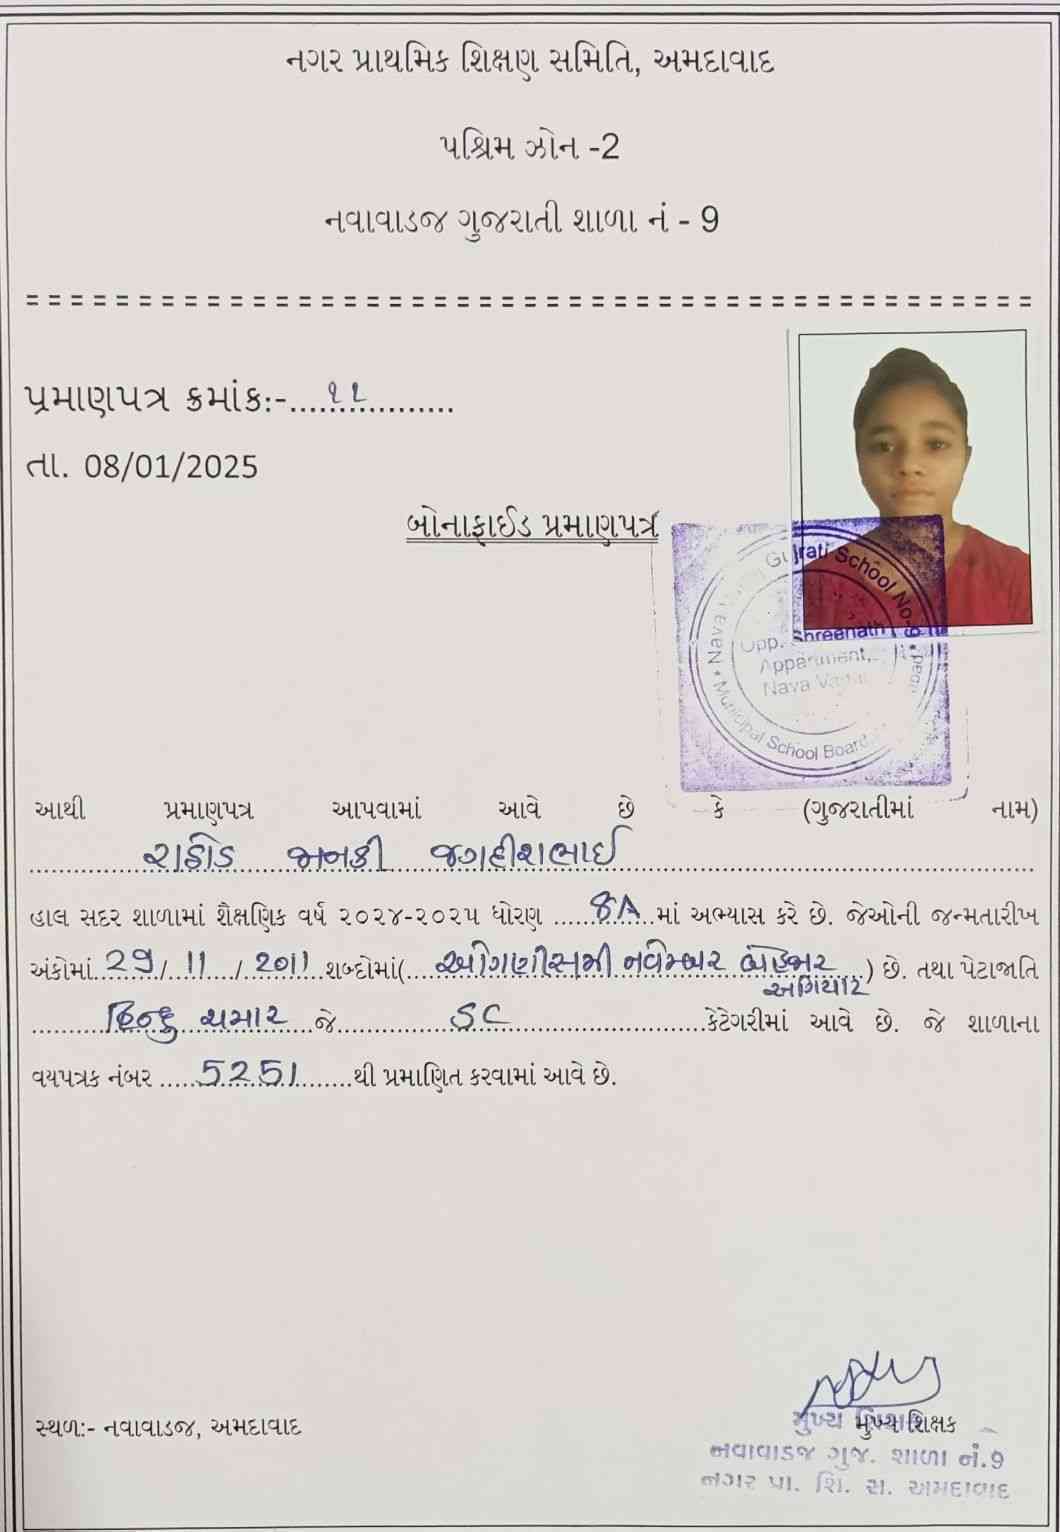 નગર પ્રાથમિક શિક્ષણ સમિતિ, અમદાવાદ
પશ્રિમ ઝોન -2
નવાવાડજ ગુજરાતી શાળા નં - 9
પ્રમાણપત્ર ક્રમાંક:-.....૧૨.....
તા. 08/01/2025
બોનાફાઈડ પ્રમાણપત્ર
Gujrati School No-9
Opp. Shreenath
Appartment,
Nava
Municipal School Board
આથી પ્રમાણપત્ર આપવામાં આવે છે કે (ગુજરાતીમાં નામ)
રાઠોડ જાનકી જગદીશભાઈ
હાલ સદર શાળામાં શૈક્ષણિક વર્ષ ૨૦૨૪-૨૦૨૫ ધોરણ .....8A...માં અભ્યાસ કરે છે. જેઓની જન્મતારીખ
અંકોમાં..29./..11../..2011..શબ્દોમાં(...ઓગણીસમી નવેમ્બર બેહજાર અગિયાર) છે. તથા પેટાજાતિ
હિન્દુ ચમાર જે SC કેટેગરીમાં આવે છે. જે શાળાના
વયપત્રક નંબર .....5251.......થી પ્રમાણિત કરવામાં આવે છે.
સ્થળ:- નવાવાડજ, અમદાવાદ
મુખ્ય શિક્ષક
મુખ્ય
નવાવાડજ ગુજ. શાળા નં.9
નગર પ્રા. શિ. સ. અમદાવાદ